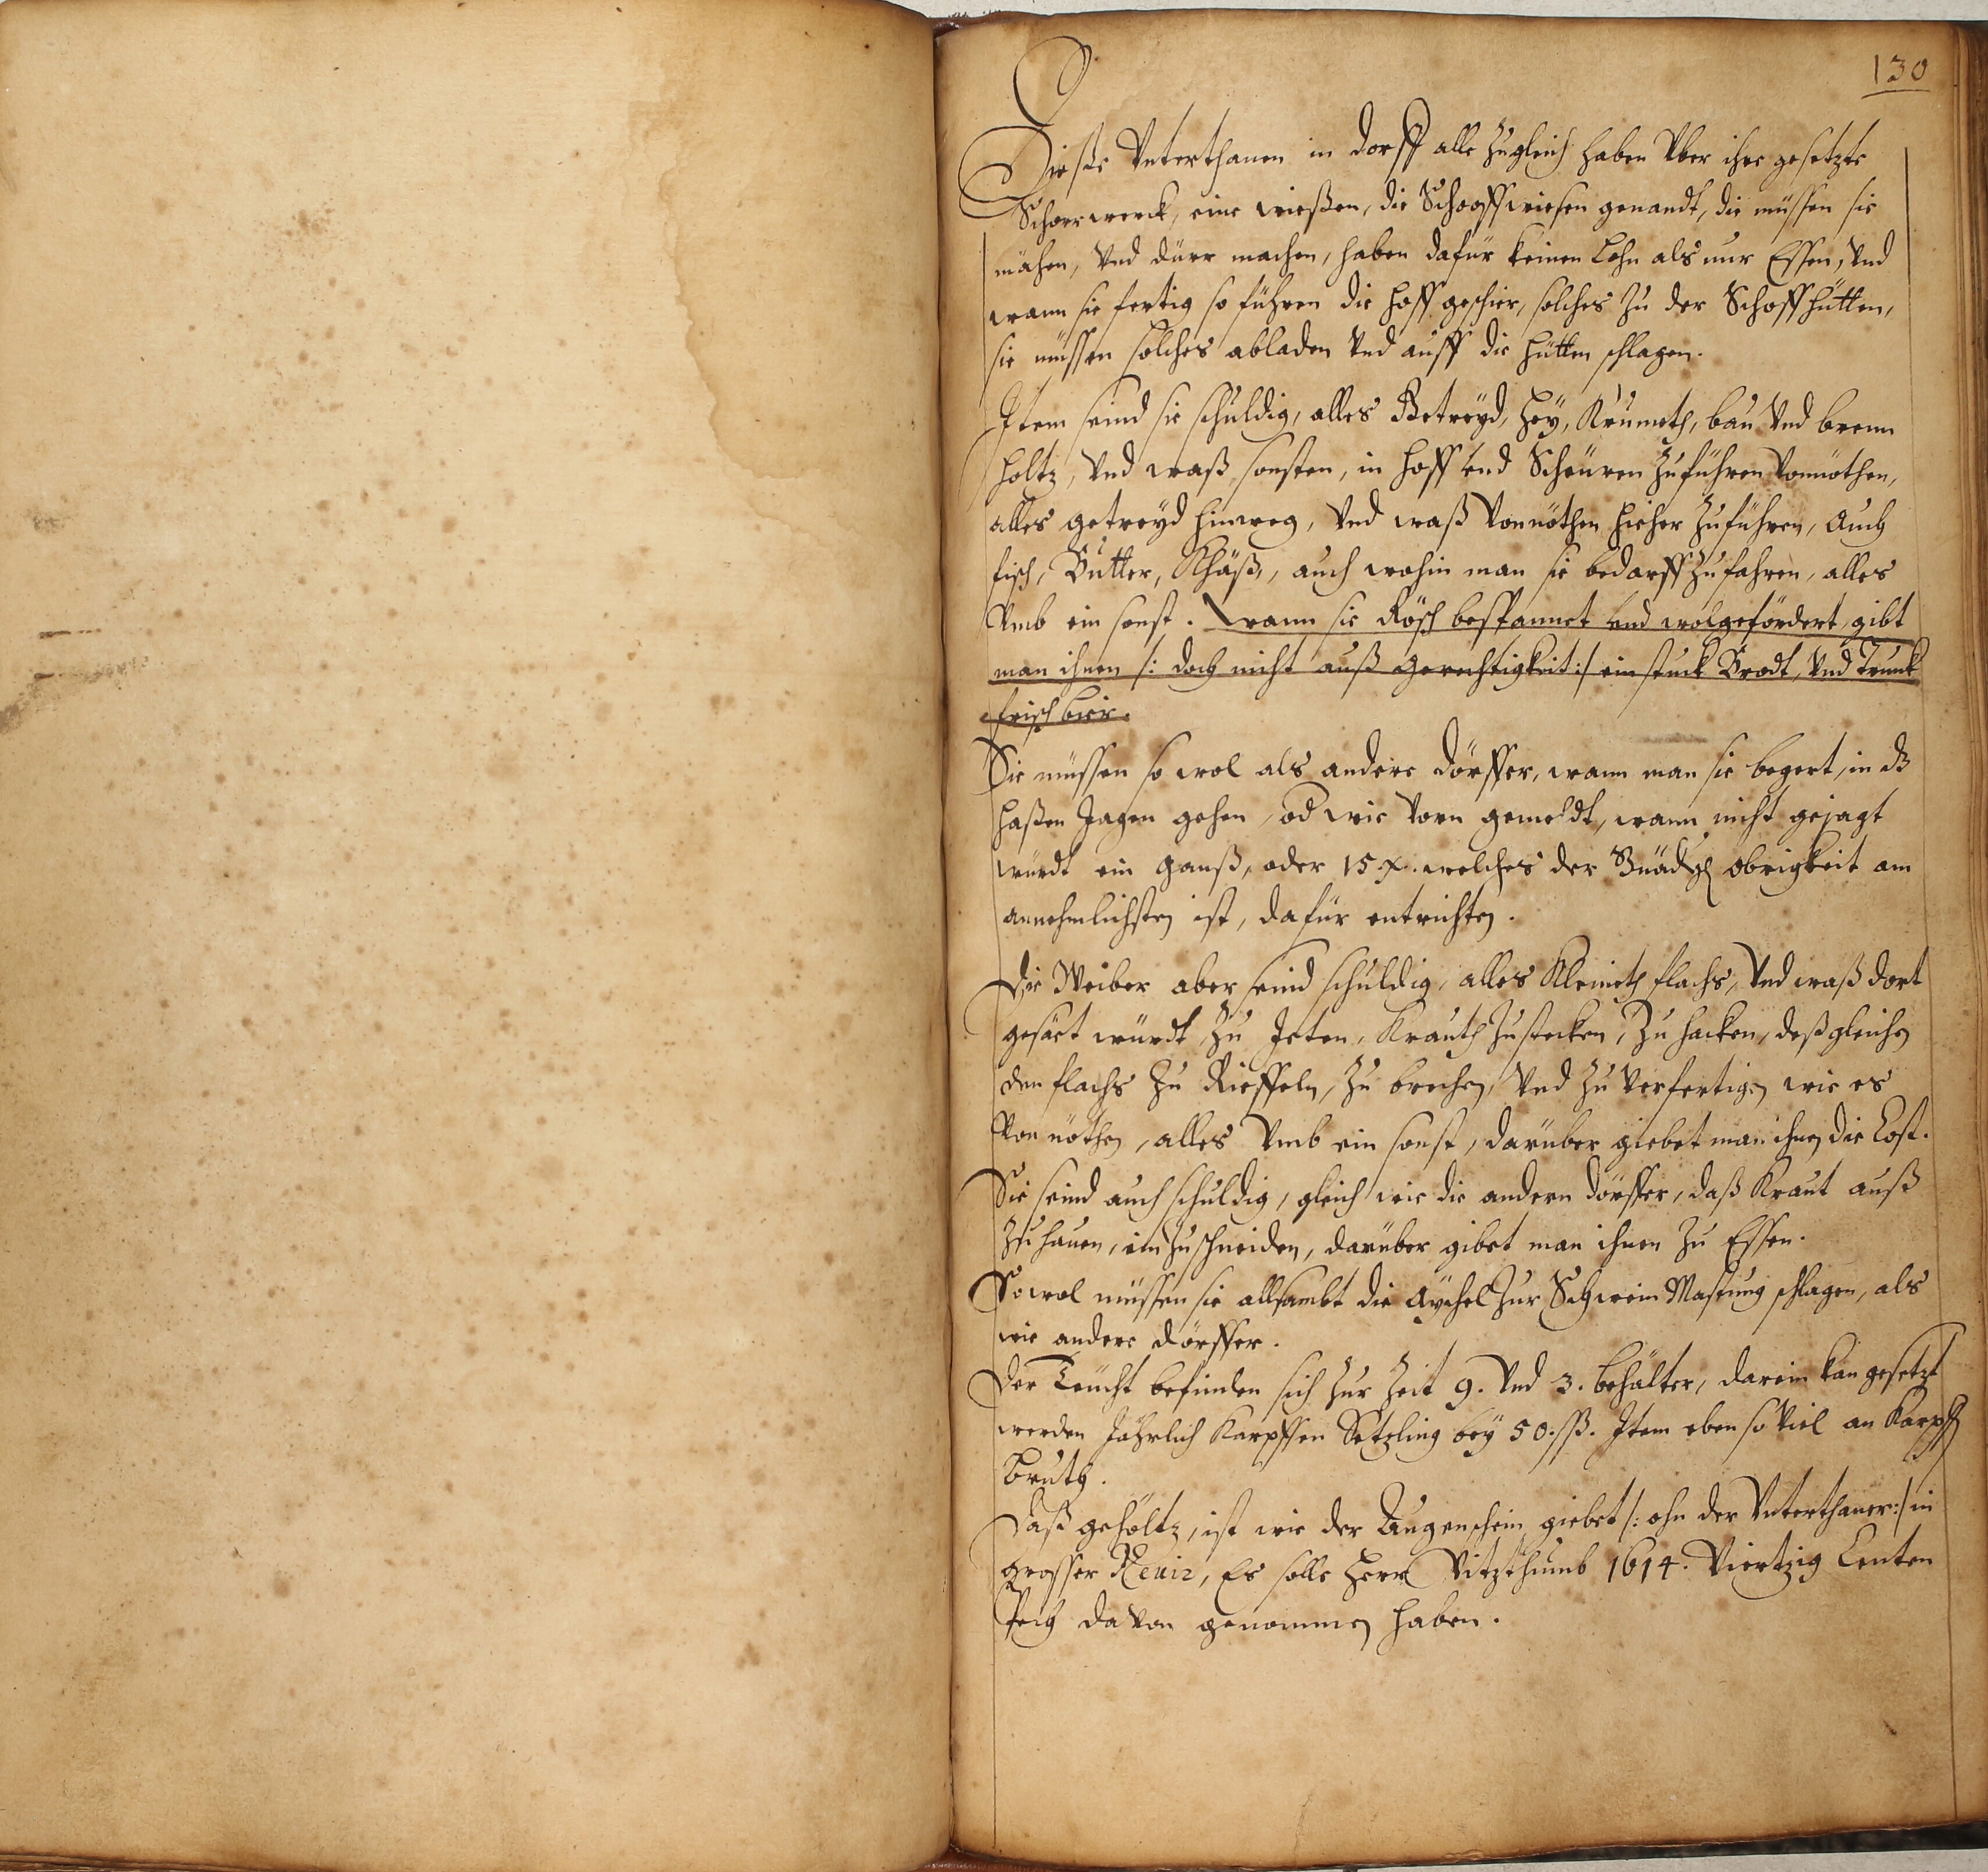 130
Dieße Vnterthanen in dorff alle zugleich haben Vber ihre gesetzte
Scharwerck, eine wießen, die Schaaffwiesen genandt, die müssen sie
mähen, Vnd dürr machen, haben dafür keinen Lohn als nur Essen, Vnd
wann sie fertig so führen die hoff geschier, solches zu der Schoffhütten,
sie müssen solches abladen Vnd auff die hütten schlagen.
Item seind sie schuldig, alles Getreyd, Hey, Krumeth, bau Vnd brenn
holtz, Vnd waß sonsten, in hoff Vnd Scheüren zuführen Vonnöthen,
alles getreyd hinweg, Vnd waß Vonnöthen hieher zuführen, Auch
fisch, Butter, Khäß, auch wohin man sie bedarff zufahren, alles
Vmb ein sonst. wann sie Rösch bespannet Vnd wolgefördert, gibt
man ihnen /: doch nicht auß gerechtigkeit :/ ein stuck Brodt, Vnd Trunck
frisch bier.
Sie müssen so wol als andere dörffer, wann man sie begert, in dz
haßen Jagen gehen, od wie vorn gemeldt, wann nicht gejagt
würdt ein ganß, oder 15 x. welches der Gnädgl obrigkeit am
annehmlichsten ist, dafür entrichten.
Die Weiber aber seind schuldig, alles Kleineth flachs, Vnd waß dort
gesäet würdt, zu Jeten, Krauth zustecken, zu hacken, deßgleichen
den flachs zu Rieffeln, zu brechen, Vnd zu Verfertigen wie es
Von nöthen, alles Vmb ein sonst, darüber giebet man ihnen die Cost.
Sie seind auch schuldig, gleich wie die andern dörffer, daß Kraut auß
zuhauen, einzuschneiden, darüber gibet man ihnen zu Essen.
So wol müssen sie allsambt die Aychel zur Schwein Mastung schlagen, als
wie andere dörffer.
Der Teücht befinden sich zur Zeit 9. Vnd 3. behälter, darein kan gesetzt
werden Jährlich Karpffen Setzling bey 50. ßß. Item eben so Viel an Karpffen
Bruth.
Daß gehöltz, ist wie der Augenschein giebet /: ohn der Vnterthaner :/ in
grosser Revir, Es solle Herr Vitzthumb 1614. Viertzig Centen
Pech davon genommen haben.